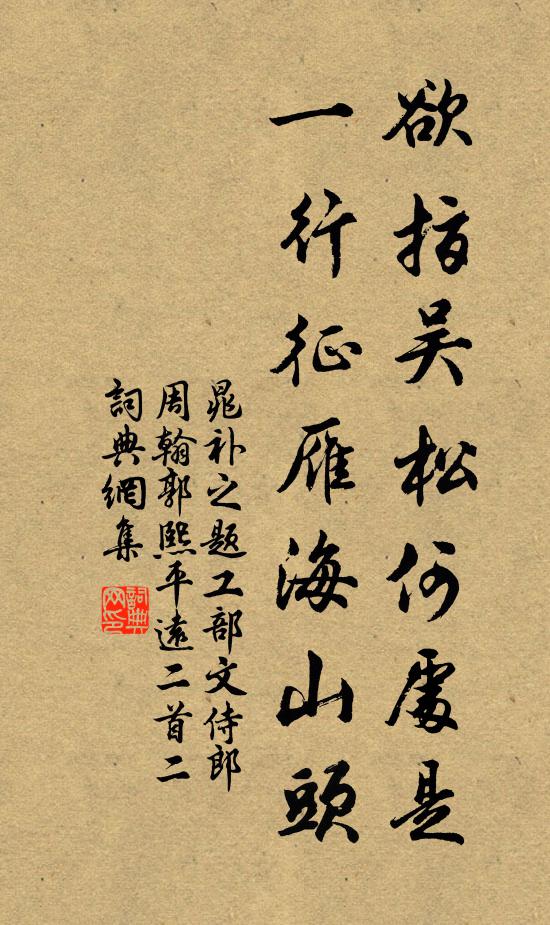 欲指吴松何處是
一行征雁海山頭
晁补之题工部文侍郎
周翰郭熙平遠二首二
詞典網集
詞典
网印